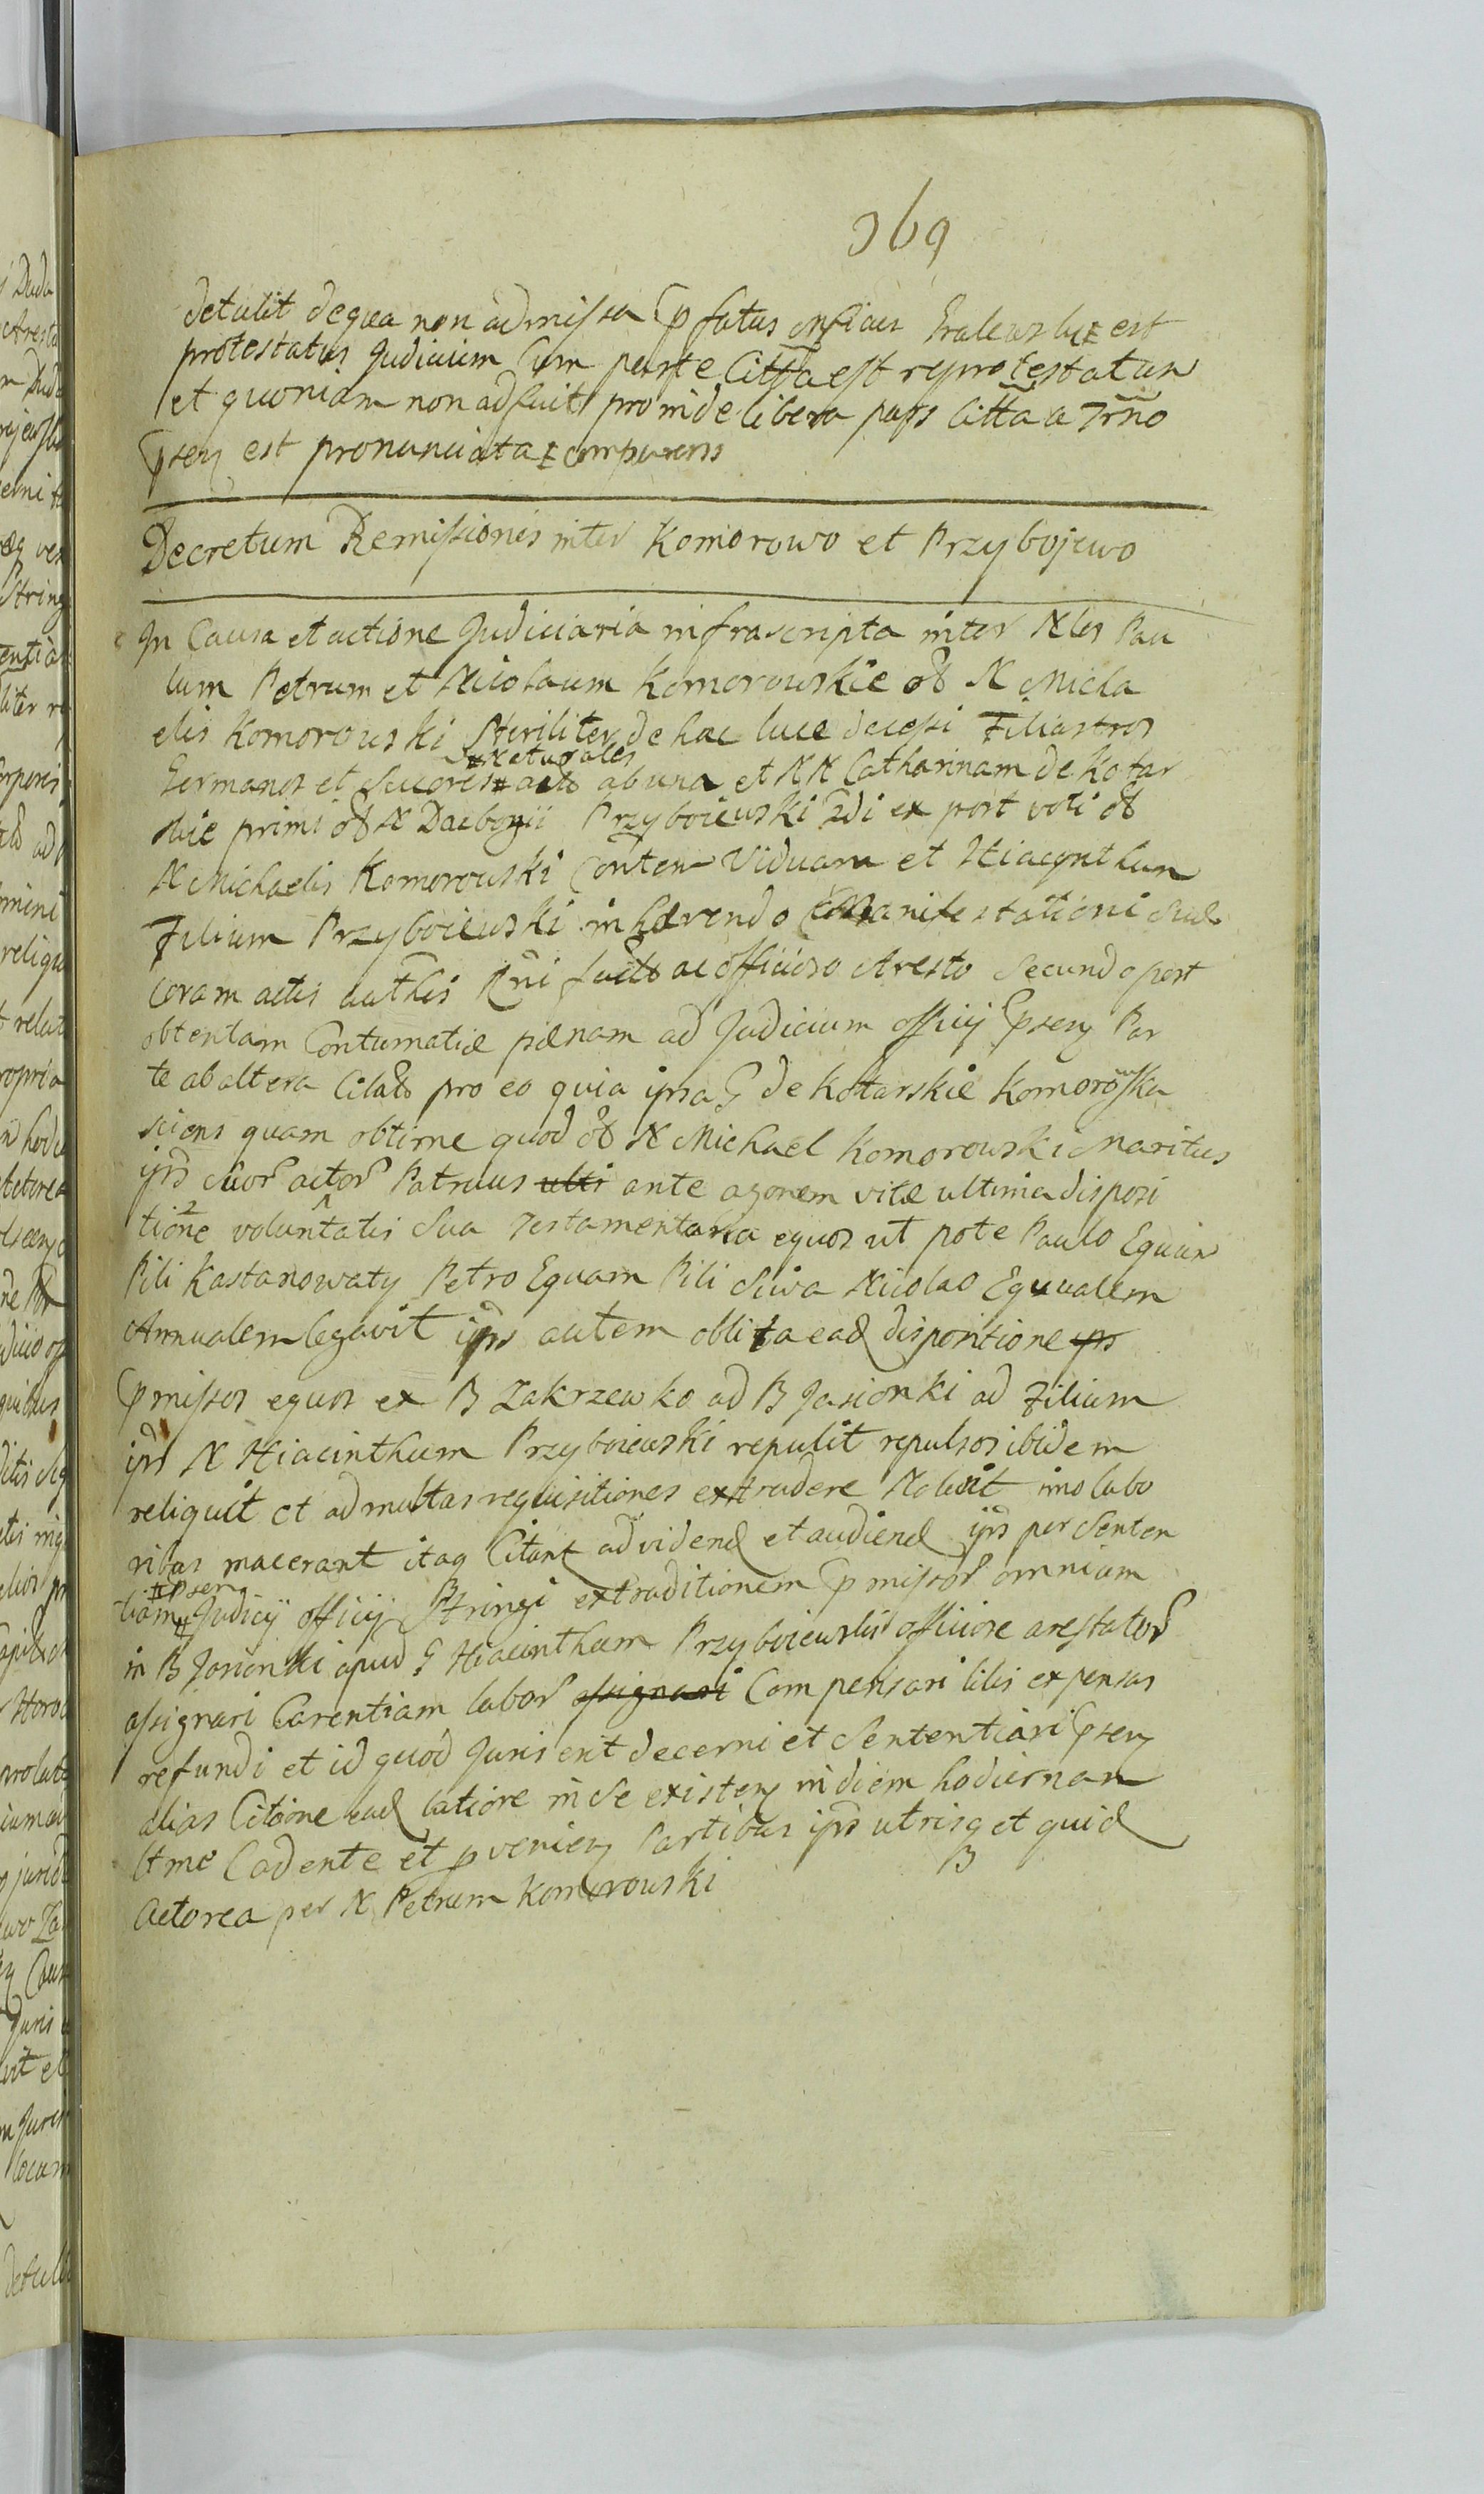 369
detulit de qua non admissa
protestatus Judicium Cum parte Citta est reprotestatum
et quoniam non adfuit proinde libera pars Citta a Trno
est pronunciata comparens
Decretum Remissionis inter Komorowo et Przybojewo
In Causa et actione Judiciaria infrascripta inter Nles Pau
lum Petrum et Nicolaum Komorowskie N Micha
elis Komorowski Steriliter de hac luce decessi Filiastros
Germanos et Succores Naturales actt ab una et NN Catharinam de Kotar
skie primi N Przyboiewski 2di ex post voti
N Michaelis Komorowski Viduam et Hiacynthum
Filium Przyboiewski inhærendo Manifestationi Suæ
coram actis fact ac officioso Aresto Secundo post
obtentam Contumatiæ pænam ad Judicium officij Par
te ab altera Citatt pro eo quia ipsa G de Kotarskie Komorowska
sciens quam obtime quod N Michael Komorowski Maritus
ips Suor actor Patruus ulti ante agonem vitæ ultima disposi
tione voluntatis Sua Testamentaria equos ut pote Paulo Equum
Pili Kastanowaty Petro Equam Pili Siwa Nicolao
Annualem legavit ips autem oblita ead dispositione ips
pmissos equos ex B Zakrzewko ad B Jasionki ad Filium
ips N Hiacinthum Przyboiewski repulit repulsos ibidem
reliquit et ad multas requisitiones extradere Noluit imo labo
ribus macerant itaq Citant ad vidend et audiend ips per Senten
tiam Judicij officij Stringi extraditionem pmissor omnium
in B Jasionki apud G Hiacinthum Przyboiewski officiose arestator
assignari Carentiam labor assignari Compensari litis expensas
refundi et id quod Juris erit decerni et Sententiari
alias Citoine ead latiore in Se existen in diem hodiernam
Cadente et pvenien Partibus ips utrisq et quid
Actorea per N Petrum Komorowski